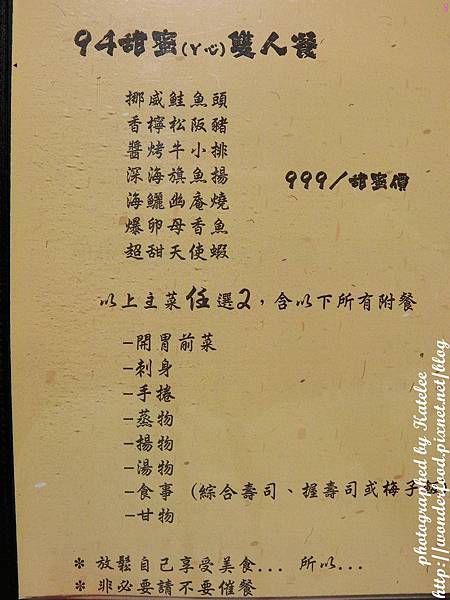 94甜蜜(ㄚ心)雙人餐
挪威鮭魚頭
香檸松阪豬
醬烤牛小排
深海旗魚揚
999/甜蜜價
海鱺幽庵燒
爆卵母香魚
超甜天使蝦
以上主菜任選2,含以下所有附餐
-開胃前菜
-刺身
-手捲
-蒸物
-揚物
-湯物
-食事 (綜合壽司、握壽司或梅子
-甘物
* 放鬆自己享受美食... 所以...
* 非必要請不要催餐
photographed by Katelee
http://wonderfood.pixnet.net/blog